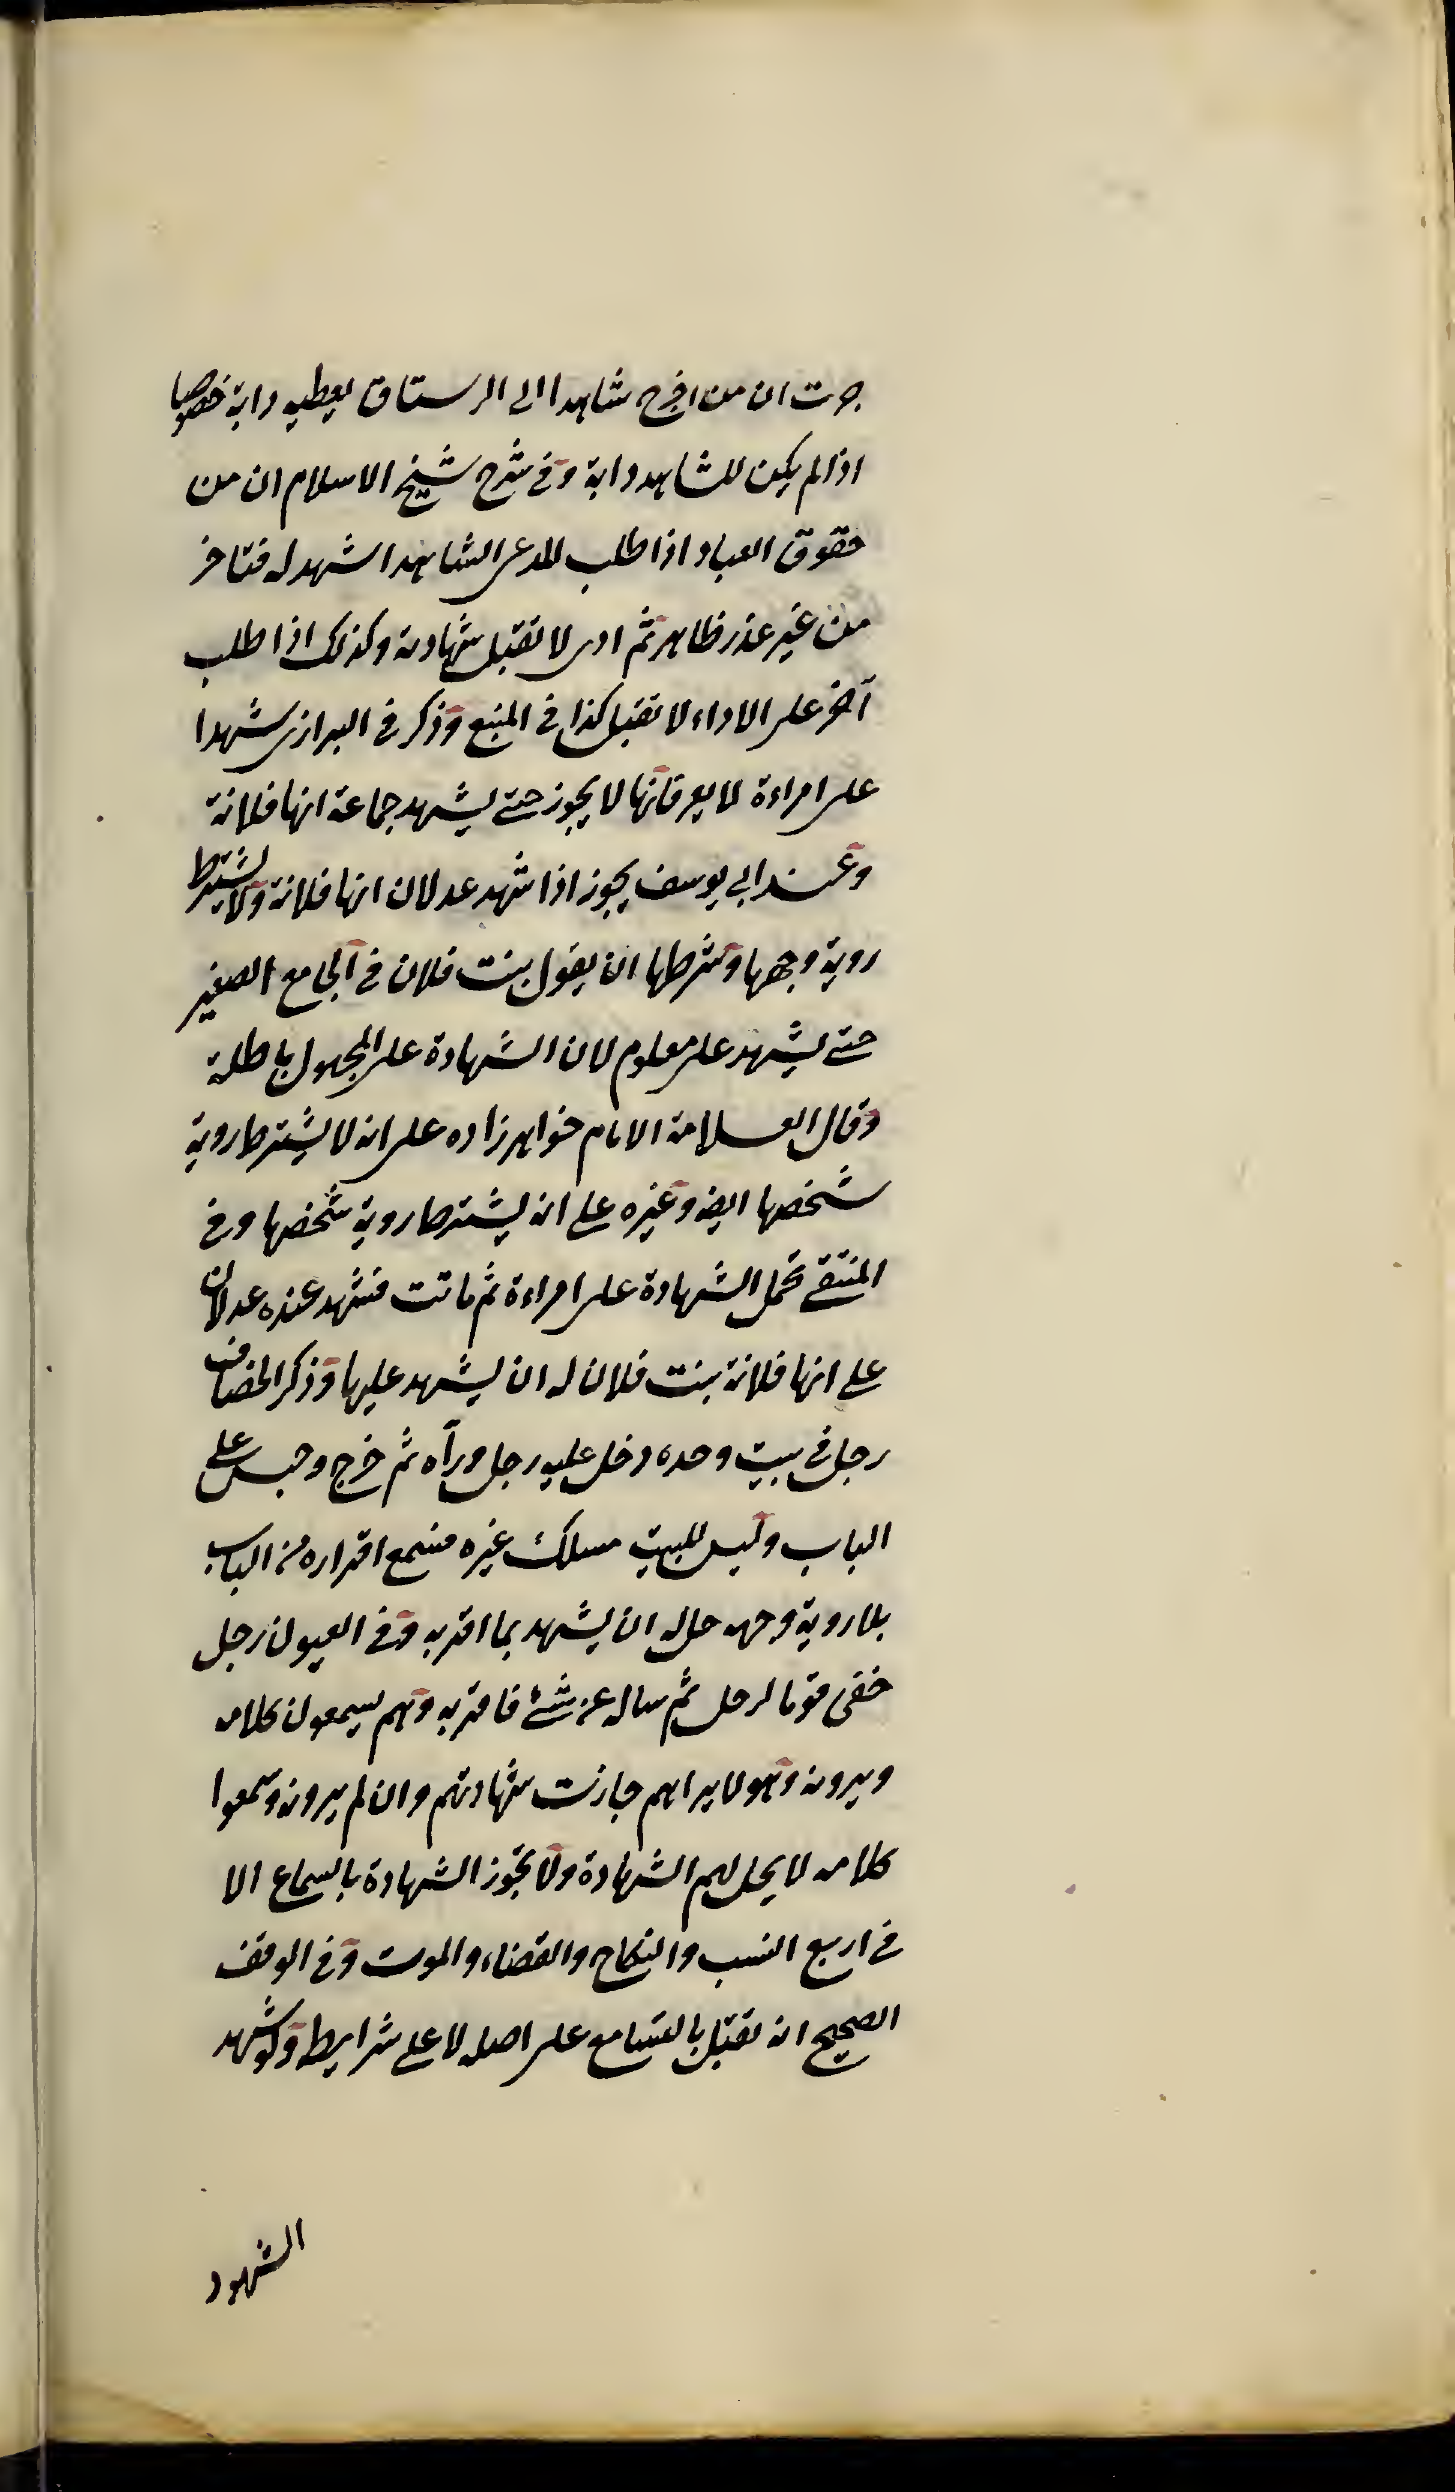 جرت ان من اخرج شاهدا الى الرستاق يعطيه دابة خصوصا
اذا لم يكن للشاهد دابة وفى شرح شيخ الاسلام ان من
حقوق العباد اذا طلب المدعى الشاهد اشهد له فتاخر
من غير عذر ظاهر ثم ادى لا تقبل شهادته وكذلك اذا طلب
آخر على الاداء لا تقبل كذا فى المنبع وذكر فى البزازى شهدا
على امراءة لا يعرفانها لا يجوز حتى يشهد جماعة انها فلانة
وعند ابى يوسف يجوز اذا شهد عدلان انها فلانة ولا يشترط
روية وجهها وشرطها ان يقول بنت فلان فى الجامع الصغير
حتى يشهد على معلوم لان الشهادة على المجهول باطلة
وقال العلامة الامام خواهر زاده على انه لا يشترط روية
شخصها ايضه وغيره على انه يشترط روية شخصها وفى
المنتقى تحمل الشهادة على امراءة ثم ماتت فشهد عنده عدلان
على انها فلانة بنت فلان له ان يشهد عليها وذكر الخصاف
رجل فى بيت وحده دخل عليه رجل ورآه ثم خرج وجلس على
الباب وليس للبيت مسلك غيره فسمع اقراره من الباب
بلا روية وجهه حل له ان يشهد بما اقر به وفى العيون رجل
خفى قوما لرجل ثم ساله عن شئ فاقر به وهم يسمعون كلامه
ويرونه وهو لا يراهم جازت شهادتهم وان لم يرونه وسمعوا
كلامه لا يحل لهم الشهادة ولا تجوز الشهادة بالسماع الا
فى اربع النسب والنكاح والقضاء والموت وفى الوقف
الصحيح انه تقبل بالتسامع على اصله لا على شرايطه ولو شهد
الشهود